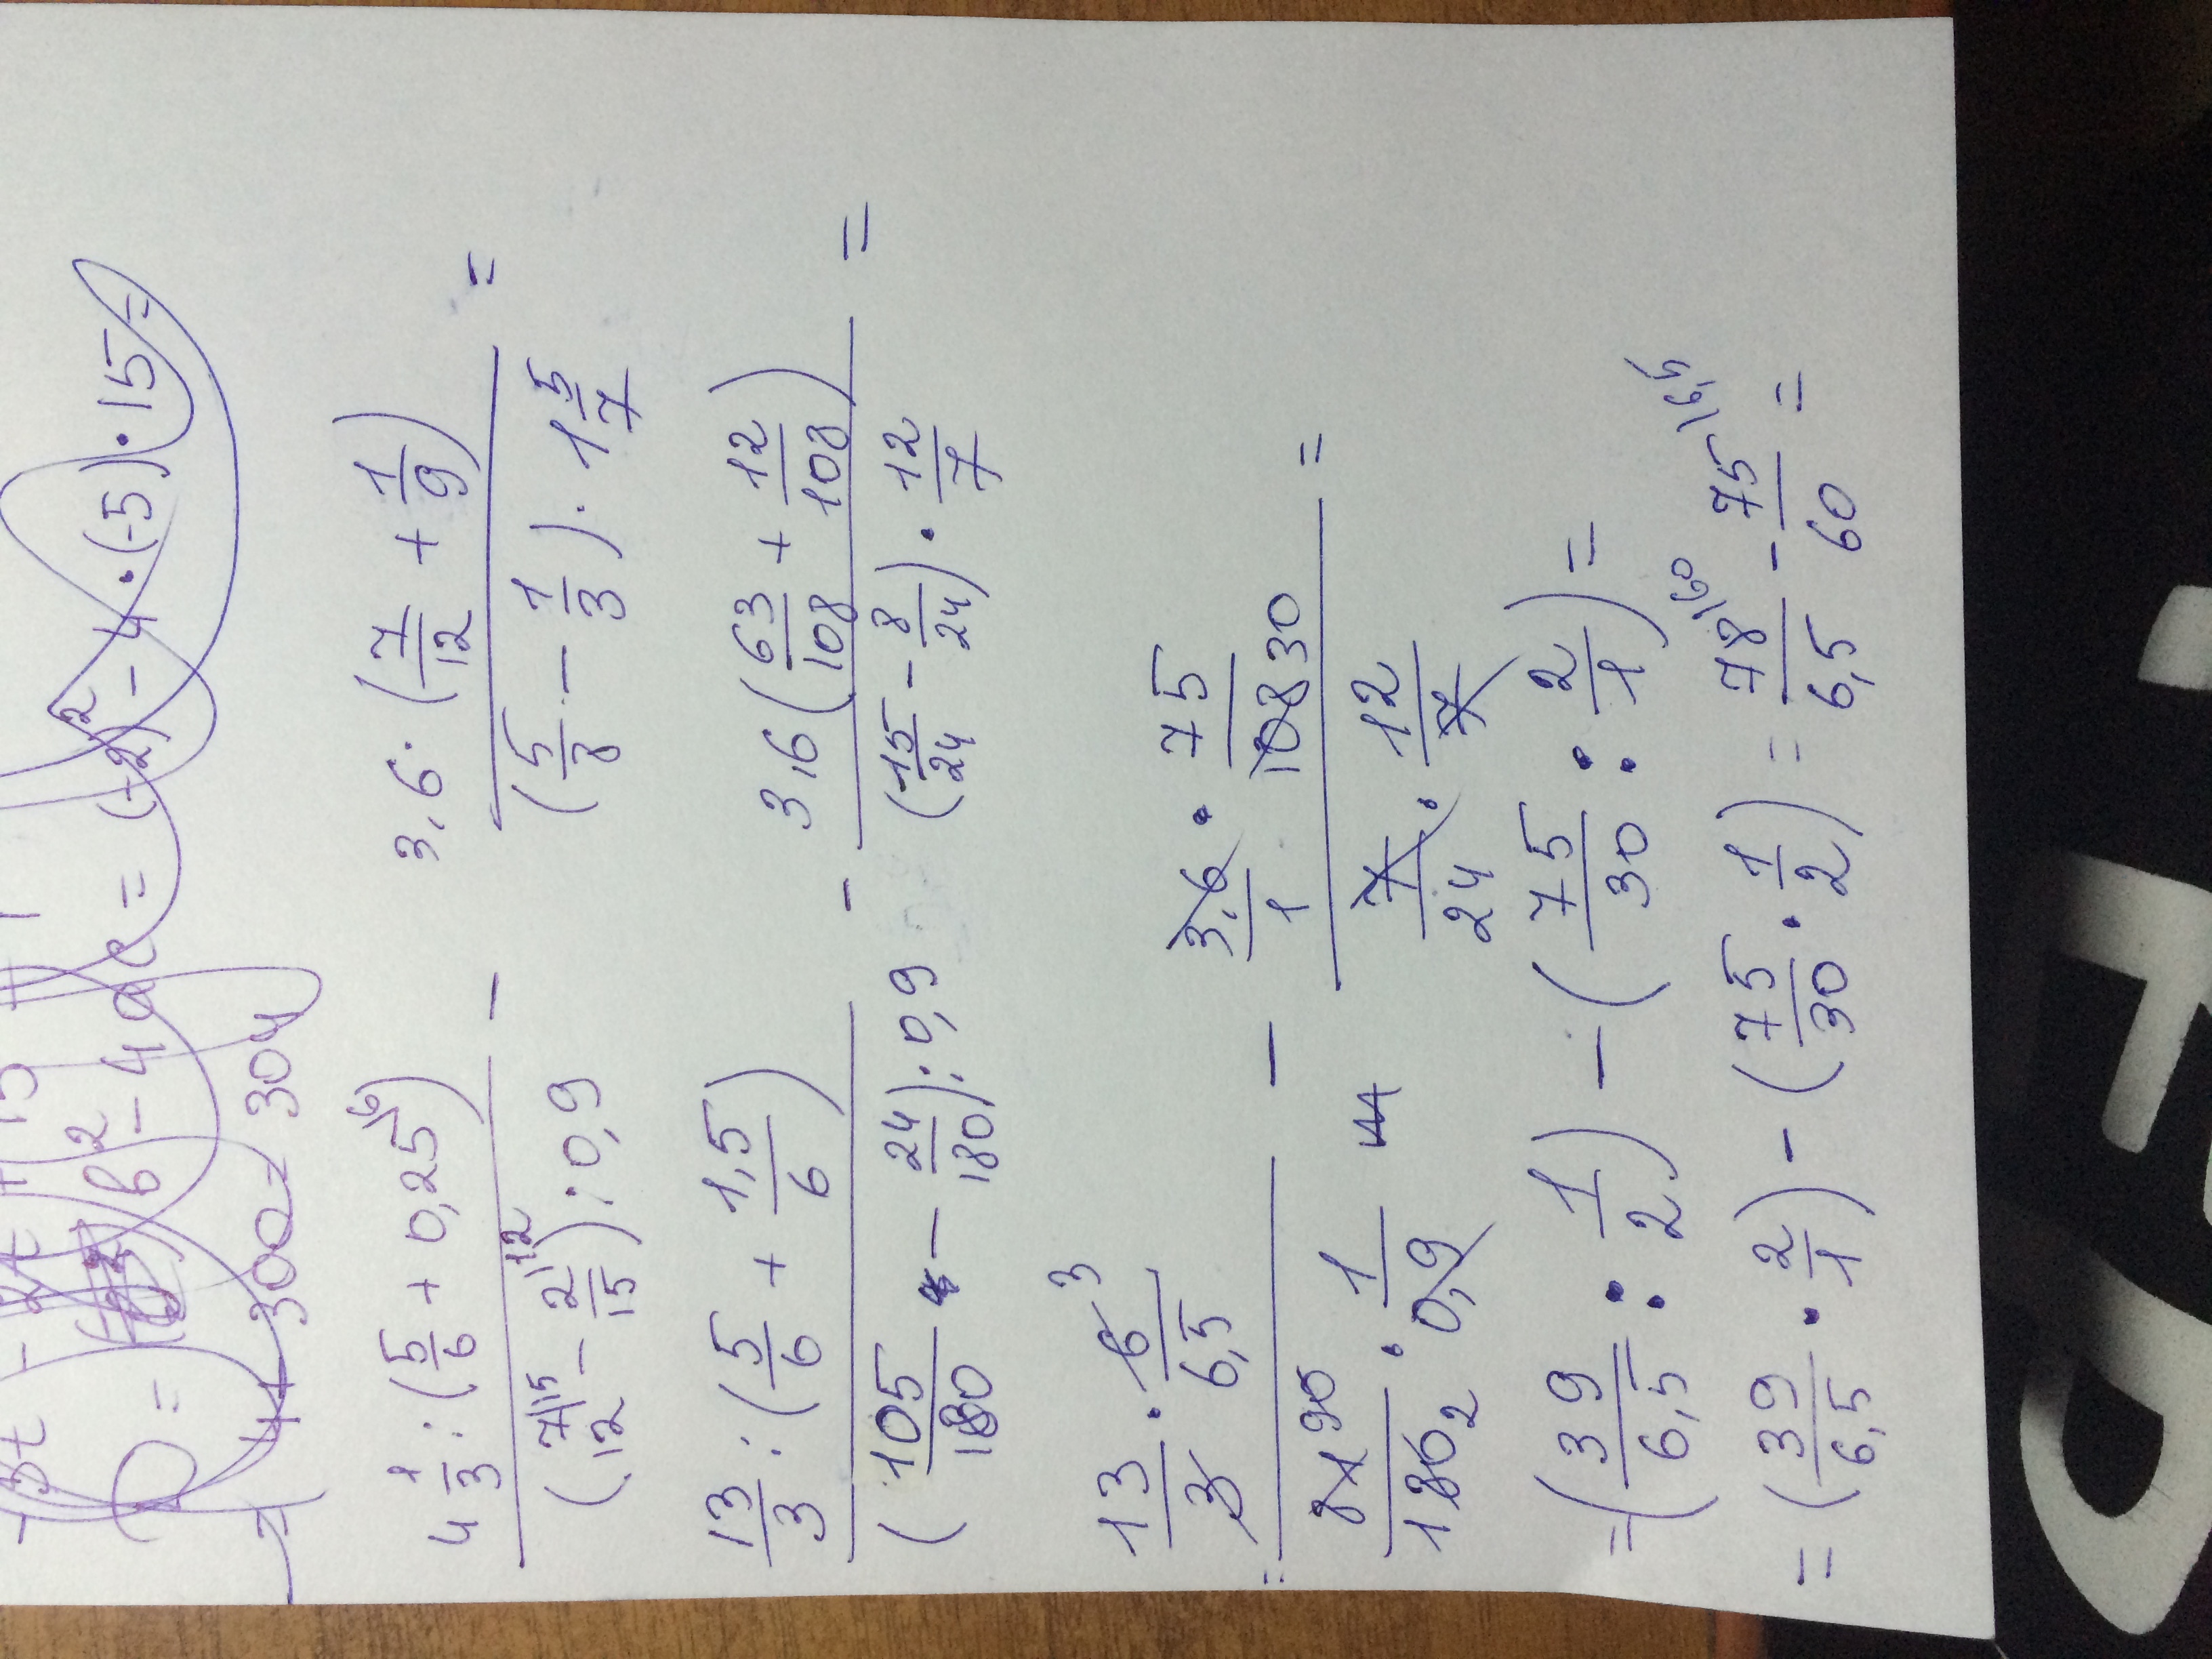 D = b² - 4ac = (-2)² - 4·(-5)·15 =
4 + 300 = 304
4 1/3 : (5/6 + 0,25\6) / (7\15/12 - 2\12/15) : 0,9 - 3,6·(7/12 + 1/9) / (5/8 - 1/3)·1 5/7 =
13/3 : (5/6 + 1,5/6) / (105/180 - 24/180) : 0,9 - 3,6(63/108 + 12/108) / (15/24 - 8/24)·12/7 =
= 13/3 · 6/6,5 3 / 81 90/180 2 · 1/0,9 - 3,6/1 · 75/108 30 / 7/24 · 12/7 =
= (39/6,5 : 1/2) - (75/30 : 2/1) =
= (39/6,5 · 2/1) - (75/30 · 1/2) = 78\60/6,5 - 75\6,5/60 =